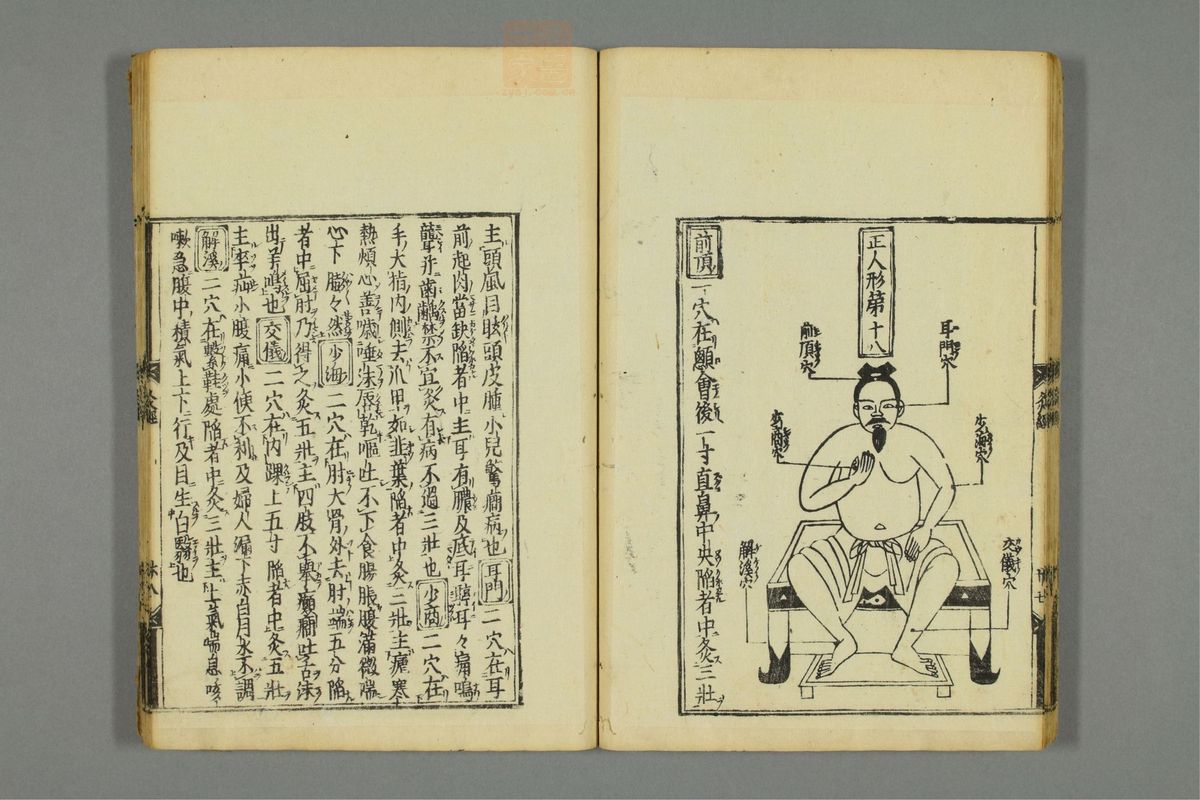 正人形第十八
耳門穴
前頂穴
少海穴
少商穴
交儀穴
解溪穴
前頂一穴在顖會後一寸直鼻中央陷者中灸三壯
主頭風目眩頭皮腫小兒驚癇病也耳門二穴在耳
前起肉當缺陷者中主耳有膿及底耳聤耳々痛鳴
聾并齒齲禁不宜灸有病不過三壯也少商二穴在
手大指內側去爪甲如韭葉陷者中灸三壯主瘧寒
熱煩心善噦唾沫唇乾嘔吐不下食腸脹腹滿微喘
心下膨々然少海二穴在肘大骨外去肘端五分陷
者中屈肘乃得之灸五壯主四肢不舉癲癇吐舌沫
出羊鳴也交儀二穴在内踝上五寸陷者中灸五壯
主卒疝小腹痛小便不利及婦人漏下赤白月水不調
解溪二穴在繫鞋處陷者中灸三壯主上氣喘息咳
嗽急腹中積氣上下行及目生白翳也